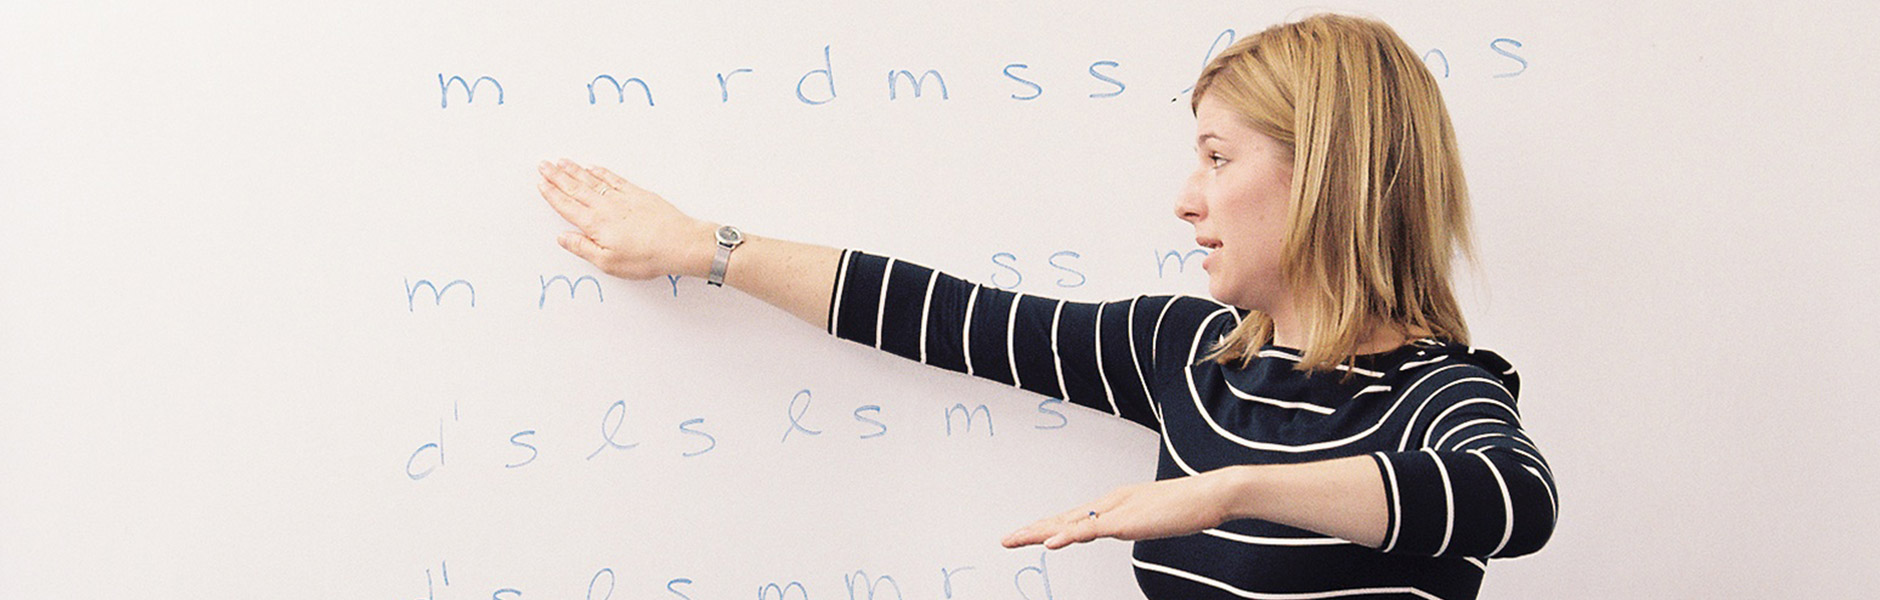 m m r d m s s l s
m m r s s m
d's l s l s m s
d's l s m m r d